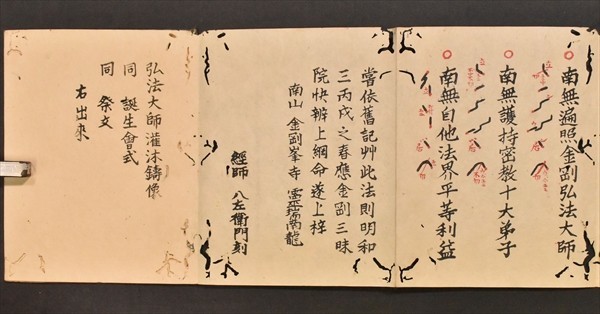 南無遍照金剛弘法大師
南無護持密教十大弟子
南無自他法界平等利益
嘗依舊記艸此法則明和
三丙戌之春應金剛三昧
院快辨上綱命遂上梓
南山 金剛峯寺 靈瑞南龍
經師 八左衛門刻
弘法大師灌沐鋳像
同 誕生會式
同 祭文
右出來